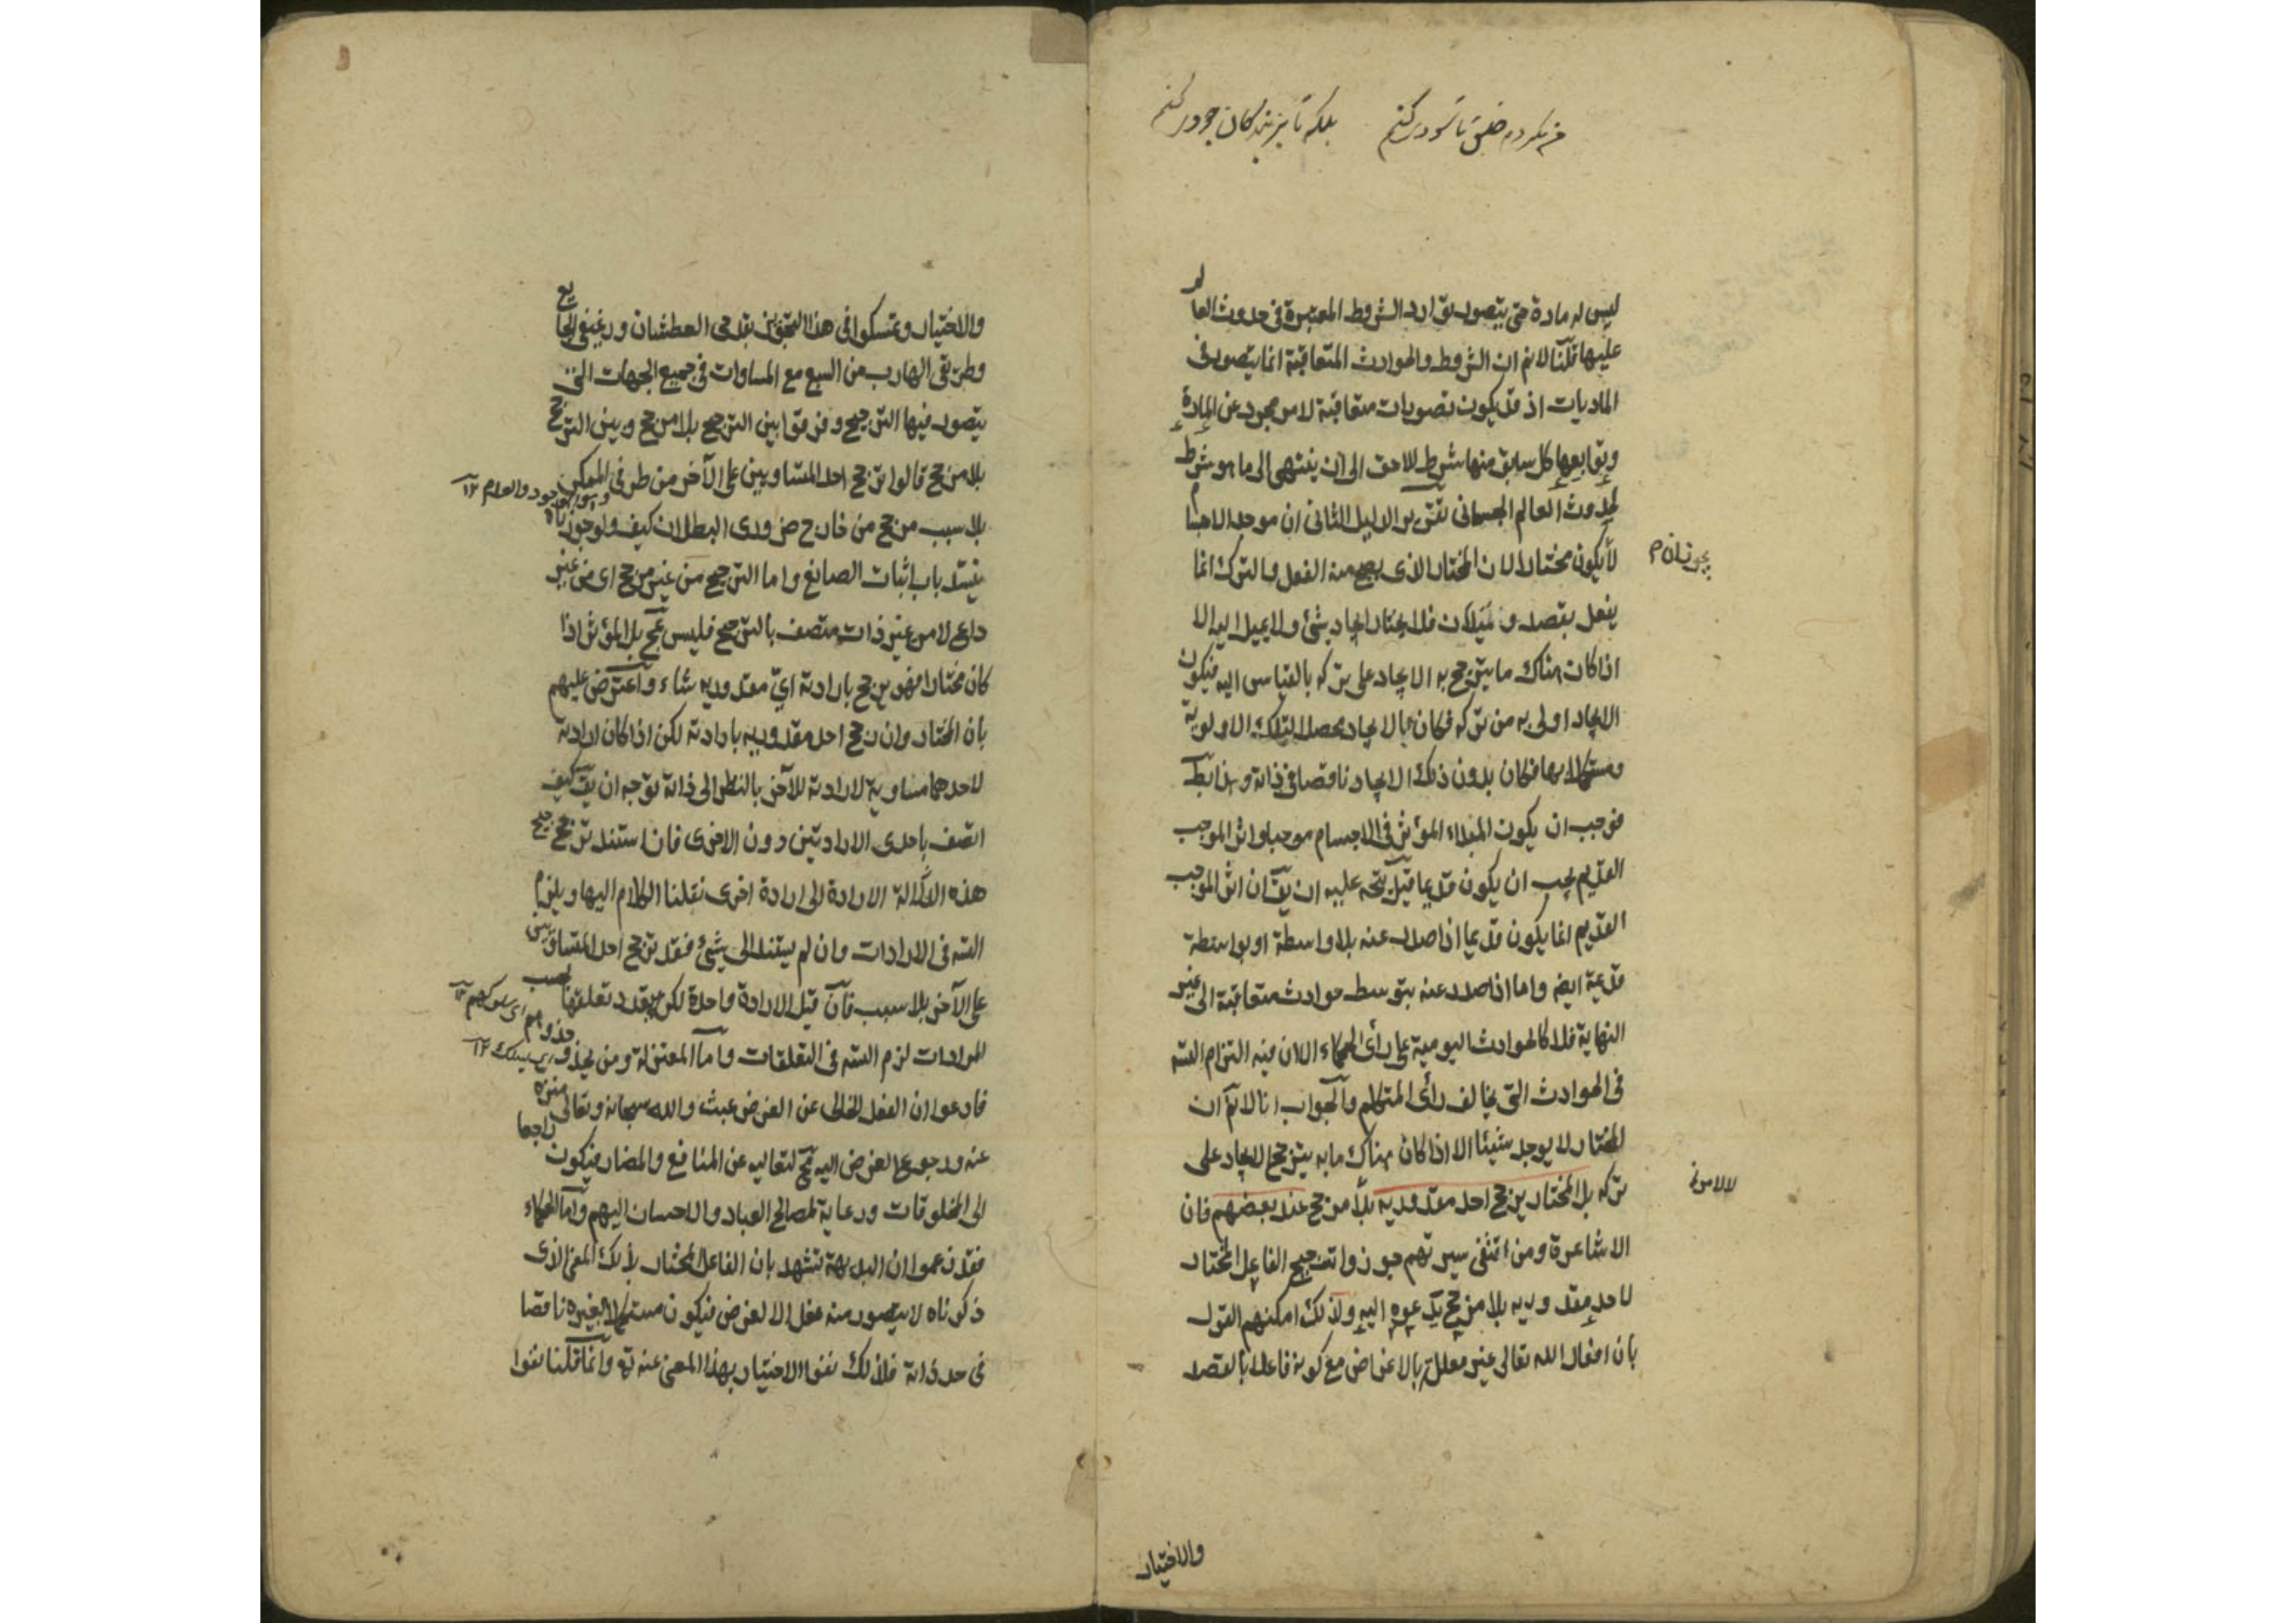 من نکردم خلق تا سودی کنم بلکه تا بر بندگان جودی کنم
ليس له مادة حتى يتصور توارد الشروط المعتبرة في حدوث العالم
عليها قلنا لانم ان الشروط والحوادث المتعاقبة انما يتصور في
الماديات اذ قد يكون تصورات متعاقبة لامر مجرد عن المادة
وتوابعها كل سابق منها شرط للاحق الى ان ينتهي الى ما هو شرط
لحدوث العالم الجسماني تقرير الدليل الثاني ان موجد الاجسام
لا يكون مختارا لان المختار الذي يصح منه الفعل والترك انما
يجوز ان م
يفعل بقصد و فلا يختار ايجاد شئ ولا يميل اليه الا
اذا كان هناك ما يترجح به الايجاد على تركه بالقياس اليه فيكون
الايجاد اولى به من تركه فكان بالايجاد محصلا لتلك الاولوية
ومستكملا بها فكان بدون ذلك الايجاد ناقصا في ذاته وهذا بط
فوجب ان يكون المبداء المؤثر في الاجسام موجبا واثر الموجب
القديم يجب ان يكون قديما قيل يتجه عليه ان يق ان اثر الموجب
القديم انما يكون قديما اذا صدر عنه بلا واسطة او بواسطة
قديمة ايضه واما اذا صدر عنه بتوسط حوادث متعاقبة الى غير
النهاية فلا كالحوادث اليومية على رأى الحكماء الا ان فيه التزام التسه
في الحوادث التي يخالف رأى المتكلم والجواب انا لانم ان
المختار لا يوجد شيئا الا اذا كان هناك ما به يترجح الايجاد على
تركه بل المختار يرجح احد مقدوريه بلا مرجح عند بعضهم فان
الاشاعرة ومن اقتفى سيرتهم جوزوا ترجيح الفاعل المختار
لاحد مقدوريه بلا مرجح يدعوه اليه ولذلك امكنهم القول
بان افعال الله تعالى غير معللة بالاغراض مع كونه فاعلا بالقصد
والاختيار
والاختيار وتمسكوا في هذا التجويز بقدحى العطشان ورغيفي الجايع
وطريقي الهارب من السبع مع المساوات في جميع الجهات التي
يتصور فيها الترجيح وفرقوا بين الترجيح بلا مرجح وبين الترجح
بلا مرجح قالوا ترجح احد المتساويين على الآخر من طرفي الممكن
وهو الوجود والعدم ١٢
بلا سبب مرجح من خارج ضروري البطلان كيف ولو جوزناه
ينسد باب اثبات الصانع واما الترجيح من غير مرجح اى من غير
داعى لا من غير ذات متصف بالترجيح فليس بمح بل المؤثر اذا
كان مختارا فهو يرجح بارادته اي مقدوريه شاء واعترض عليهم
بان المختار وان رجح احد مقدوريه بارادته لكن اذا كان ارادته
لاحدهما مساوية لارادته للآخر بالنظر الى ذاته توجه ان يق كيف
اتصف باحدى الارادتين دون الاخرى فان استند ترجح
هذه الارادة الى ارادة اخرى نقلنا الكلام اليها ويلزم
التسه في الارادات وان لم يستند الى شئ فقد ترجح احد المتساويين
على الآخر بلا سبب فان قيل الارادة واحدة لكن يتعدد تعلقها بحسب
المرادات لزم التسه في التعلقات واما المعتزلة ومن يحذو حذوهم
اى سلوكهم ١٢
اى يسلك ١٢
فادعوا ان الفعل الخالى عن الغرض عبث والله سبحانه وتعالى منزه
عنه ورجوع الغرض اليه مح لتعاليه عن المنافع والمضار فيكون راجعا
الى المخلوقات ورعاية لمصالح العباد والاحسان اليهم واما الحكماء
فقد زعموا ان البديهة تشهد بان الفاعل المختار بذلك المعنى الذى
ذكرناه لا يتصور منه فعل الا لغرض فيكون مستكملا بغيره ناقصا
في حد ذاته فلذلك نفوا الاختيار بهذا المعنى عنه ته وانما قلنا نفوا